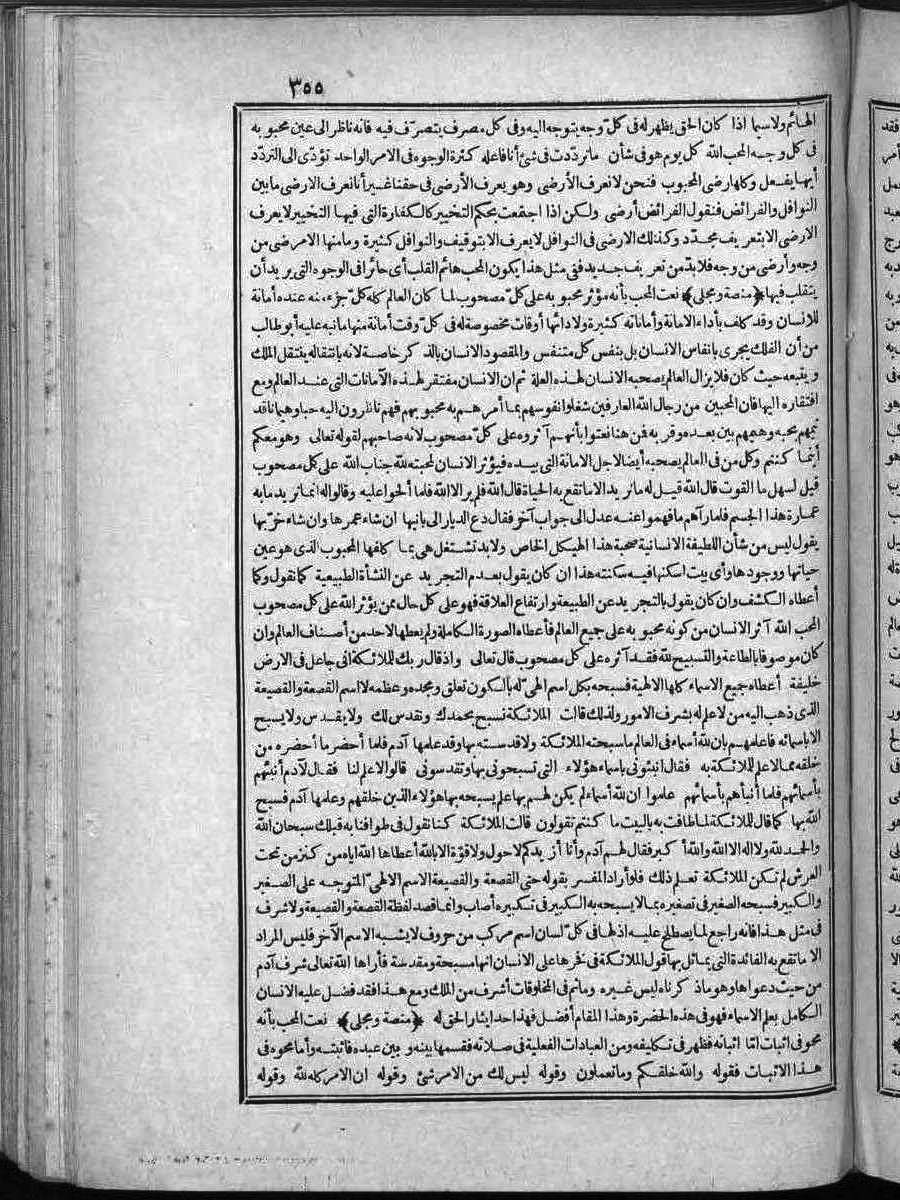 ٣٥٥
الهائم ولاسيما اذا كان الحق يظهر له فى كل وجه يتوجه اليه وفى كل مصرف يتصرف فيه فانه ناظر الى عين محبوبه
فى كل وجه المحب الله كل يوم هو فى شأن ماترددت فى شئ أنا فاعله كثرة الوجوه فى الامر الواحد تؤدى الى التردد
أيها يفعل وكلها رضى المحبوب فنحن لا نعرف الأرضى وهو يعرف الأرضى فى حقنا غير أنا نعرف الارضى ما بين
النوافل والفرائض فنقول الفرائض أرضى ولكن اذا اجتمعت بحكم التخيير كالكفارة التى فيها التخيير لا يعرف
الارضى الا بتعريف مجدد وكذلك الارضى فى النوافل لا يعرف الا بتوقيف والنوافل كثيرة ومامنها الامرضى من
وجه وأرضى من وجه فلابد من تعريف جديد فنى مثل هذا يكون المحب هائم القلب أى حائرا فى الوجوه التى يريد أن
يتقلب فيها ﴿منصة ومجلى﴾ نعت المحب بأنه مؤثر محبوبه على كل مصحوب لما كان العالم كله كل جزء منه عنده أمانة
للانسان وقد كلف بأداء الامانة وأماناته كثيرة ولادائها أوقات مخصوصة له فى كل وقت أمانة منها مانبه عليه أبو طالب
من أن الفلك يجرى بانفاس الانسان بل بنفس كل متنفس والمقصود الانسان بالذكر خاصة لانه بانتقاله ينتقل الملك
ويتبعه حيث كان فلا يزال العالم يصحبه الانسان لهذه العلة ثم ان الانسان مفتقر لهذه الأمانات التى عند العالم ومع
افتقاره اليها فان المحبين من رجال الله العارفين شغلوا نفوسهم بما أمرهم به محبوبهم فهم ناظرون اليه حبا وهيمانا قد
تيمهم بحبه وهيمهم بين بعده وقربه فمن هنا نعتوا بأنهم آثروه على كل مصحوب لانه صاحبهم لقوله تعالى وهو معكم
أينما كنتم وكل من فى العالم يصحبه أيضا لاجل الامانة التى بيده فيؤثر الانسان لمحبته لله جناب الله على كل مصحوب
قيل لسهل ما القوت قال الله قيل له ما نريد الا ما تقع به الحياة قال الله فلم ير الا الله فلما ألحوا عليه وقالوا له انما نريد ما به
عمارة هذا الجسم فلما رآهم ما فهموا عنه عدل الى جواب آخر فقال دع الديار الى بانيها ان شاء عمرها وان شاء خربها
يقول ليس من شأن اللطيفة الانسانية صحبة هذا الهيكل الخاص ولابد تشتغل هى بما كلفها المحبوب الذى هو عين
حياتها ووجودها وأى بيت اسكنها فيه سكنته هذا ان كان يقول بعدم التجريد عن النشأة الطبيعية كما نقول وكما
أعطاه الكشف وان كان يقول بالتجريد عن الطبيعة وارتفاع العلاقة فهو على كل حال ممن يؤثر الله على كل مصحوب
المحب الله آثر الانسان من كونه محبوبه على جميع العالم فأعطاه الصورة الكاملة ولم يعطها لاحد من أصناف العالم وان
كان موصوفا بالطاعة والتسبيح لله فقد آثره على كل مصحوب قال تعالى واذ قال ربك للملائكة انى جاعل فى الارض
خليفة أعطاه جميع الاسماء كلها الالهية فسبحه بكل اسم الهى له بالكون تعلق ومجده وعظمه لا اسم القصعة والقصيعة
الذى ذهب اليه من لا علم له بشرف الامور ولذلك قالت الملائكة نسبح بحمدك ونقدس لك ولا يقدس ولا يسبح
الا باسمائه فاعلمهم بان لله أسماء فى العالم ما سبحته الملائكة ولا قدسته بها وقد علمها آدم فلما أحضر ما أحضره من
خلقه مما لا علم للملائكة به فقال انبئونى باسماء هؤلاء التى تسبحونى بها وتقدسونى قالوا لا علم لنا فقال لآدم أنبئهم
بأسمائهم فلما أنبأهم بأسمائهم علموا ان لله أسماء لم يكن لهم بها علم يسبحه بها هؤلاء الذين خلقهم وعلمها آدم فسبح
الله بها كما قال للملائكة لما طافت به بالبيت ما كنتم تقولون قالت الملائكة كنا نقول فى طوافنا به قبلك سبحان الله
والحمد لله ولا اله الا الله والله أكبر فقال لهم آدم وأنا أزيدكم لا حول ولا قوة الا بالله أعطاها الله اياه من كنز من تحت
العرش لم تكن الملائكة تعلم ذلك فلو أراد المفسر بقوله حتى القصعة والقصيعة الاسم الالهى المتوجه على الصغير
والكبير فسبحه الصغير فى تصغيره بما لا يسبحه به الكبير فى تكبيره أصاب وانما قصد لفظة القصعة والقصيعة ولا شرف
فى مثل هذا فانه راجع لما يصطلح عليه اذ لها فى كل لسان اسم مركب من حروف لا يشبه الاسم الآخر فليس المراد
الا ما تقع به الفائدة التى يماثل بها قول الملائكة فى فخرها على الانسان انها مسبحة ومقدسة فأراها الله تعالى شرف آدم
من حيث دعواها وهو ماذكرناه ليس غيره وماثم فى المخلوقات أشرف من الملك ومع هذا فقد فضل عليه الانسان
الكامل بعلم الاسماء فهو فى هذه الحضرة وهذا المقام أفضل فهذا حد ايثار الحق له ﴿منصة ومجلى﴾ نعت المحب بأنه
محو فى اثبات أما اثباته فظهر فى تكليفه ومن العبادات الفعلية فى صلاته فقسمها بينه وبين عبده فاثبته وأما محوه فى
هذا الاثبات فقوله والله خلقكم وما تعملون وقوله ليس لك من الامر شئ وقوله ان الامر كله لله وقوله